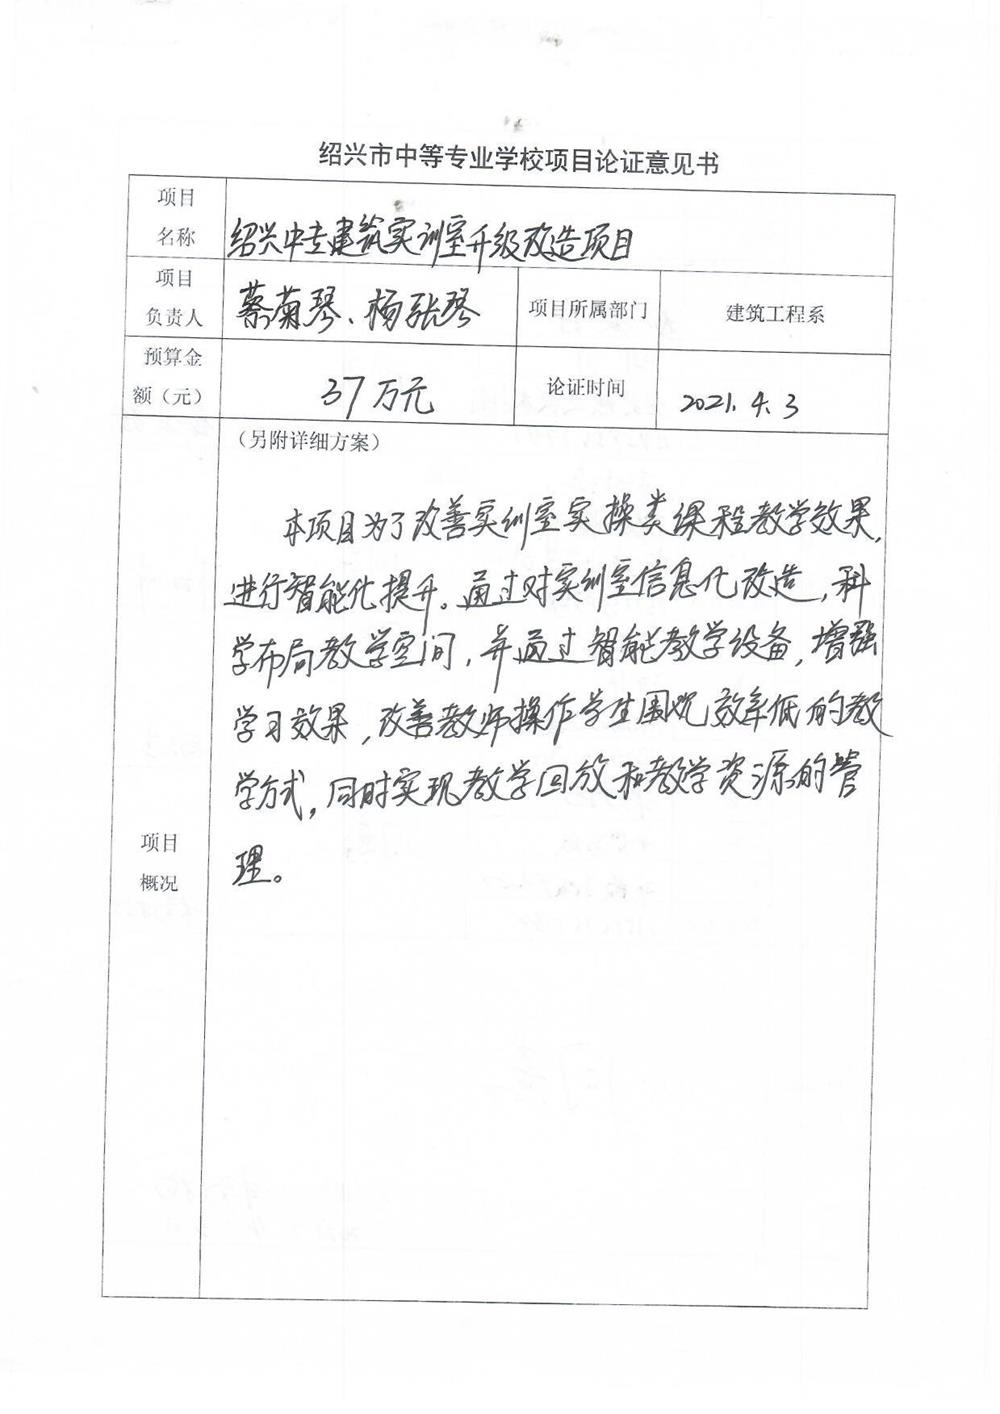 绍兴市中等专业学校项目论证意见书
项目
名称
绍兴中专建筑实训室升级改造项目
项目
负责人
蔡菊琴、杨张琴
项目所属部门
建筑工程系
预算金
额（元）
37万元
论证时间
2021.4.3
（另附详细方案）
本项目为了改善实训室实操类课程教学效果,
进行智能化提升。通过对实训室信息化改造,科
学布局教学空间,并通过智能教学设备,增强
学习效果,改善教师操作学生围观效率低的教
学方式,同时实现教学回放和教学资源的管
理。
项目
概况